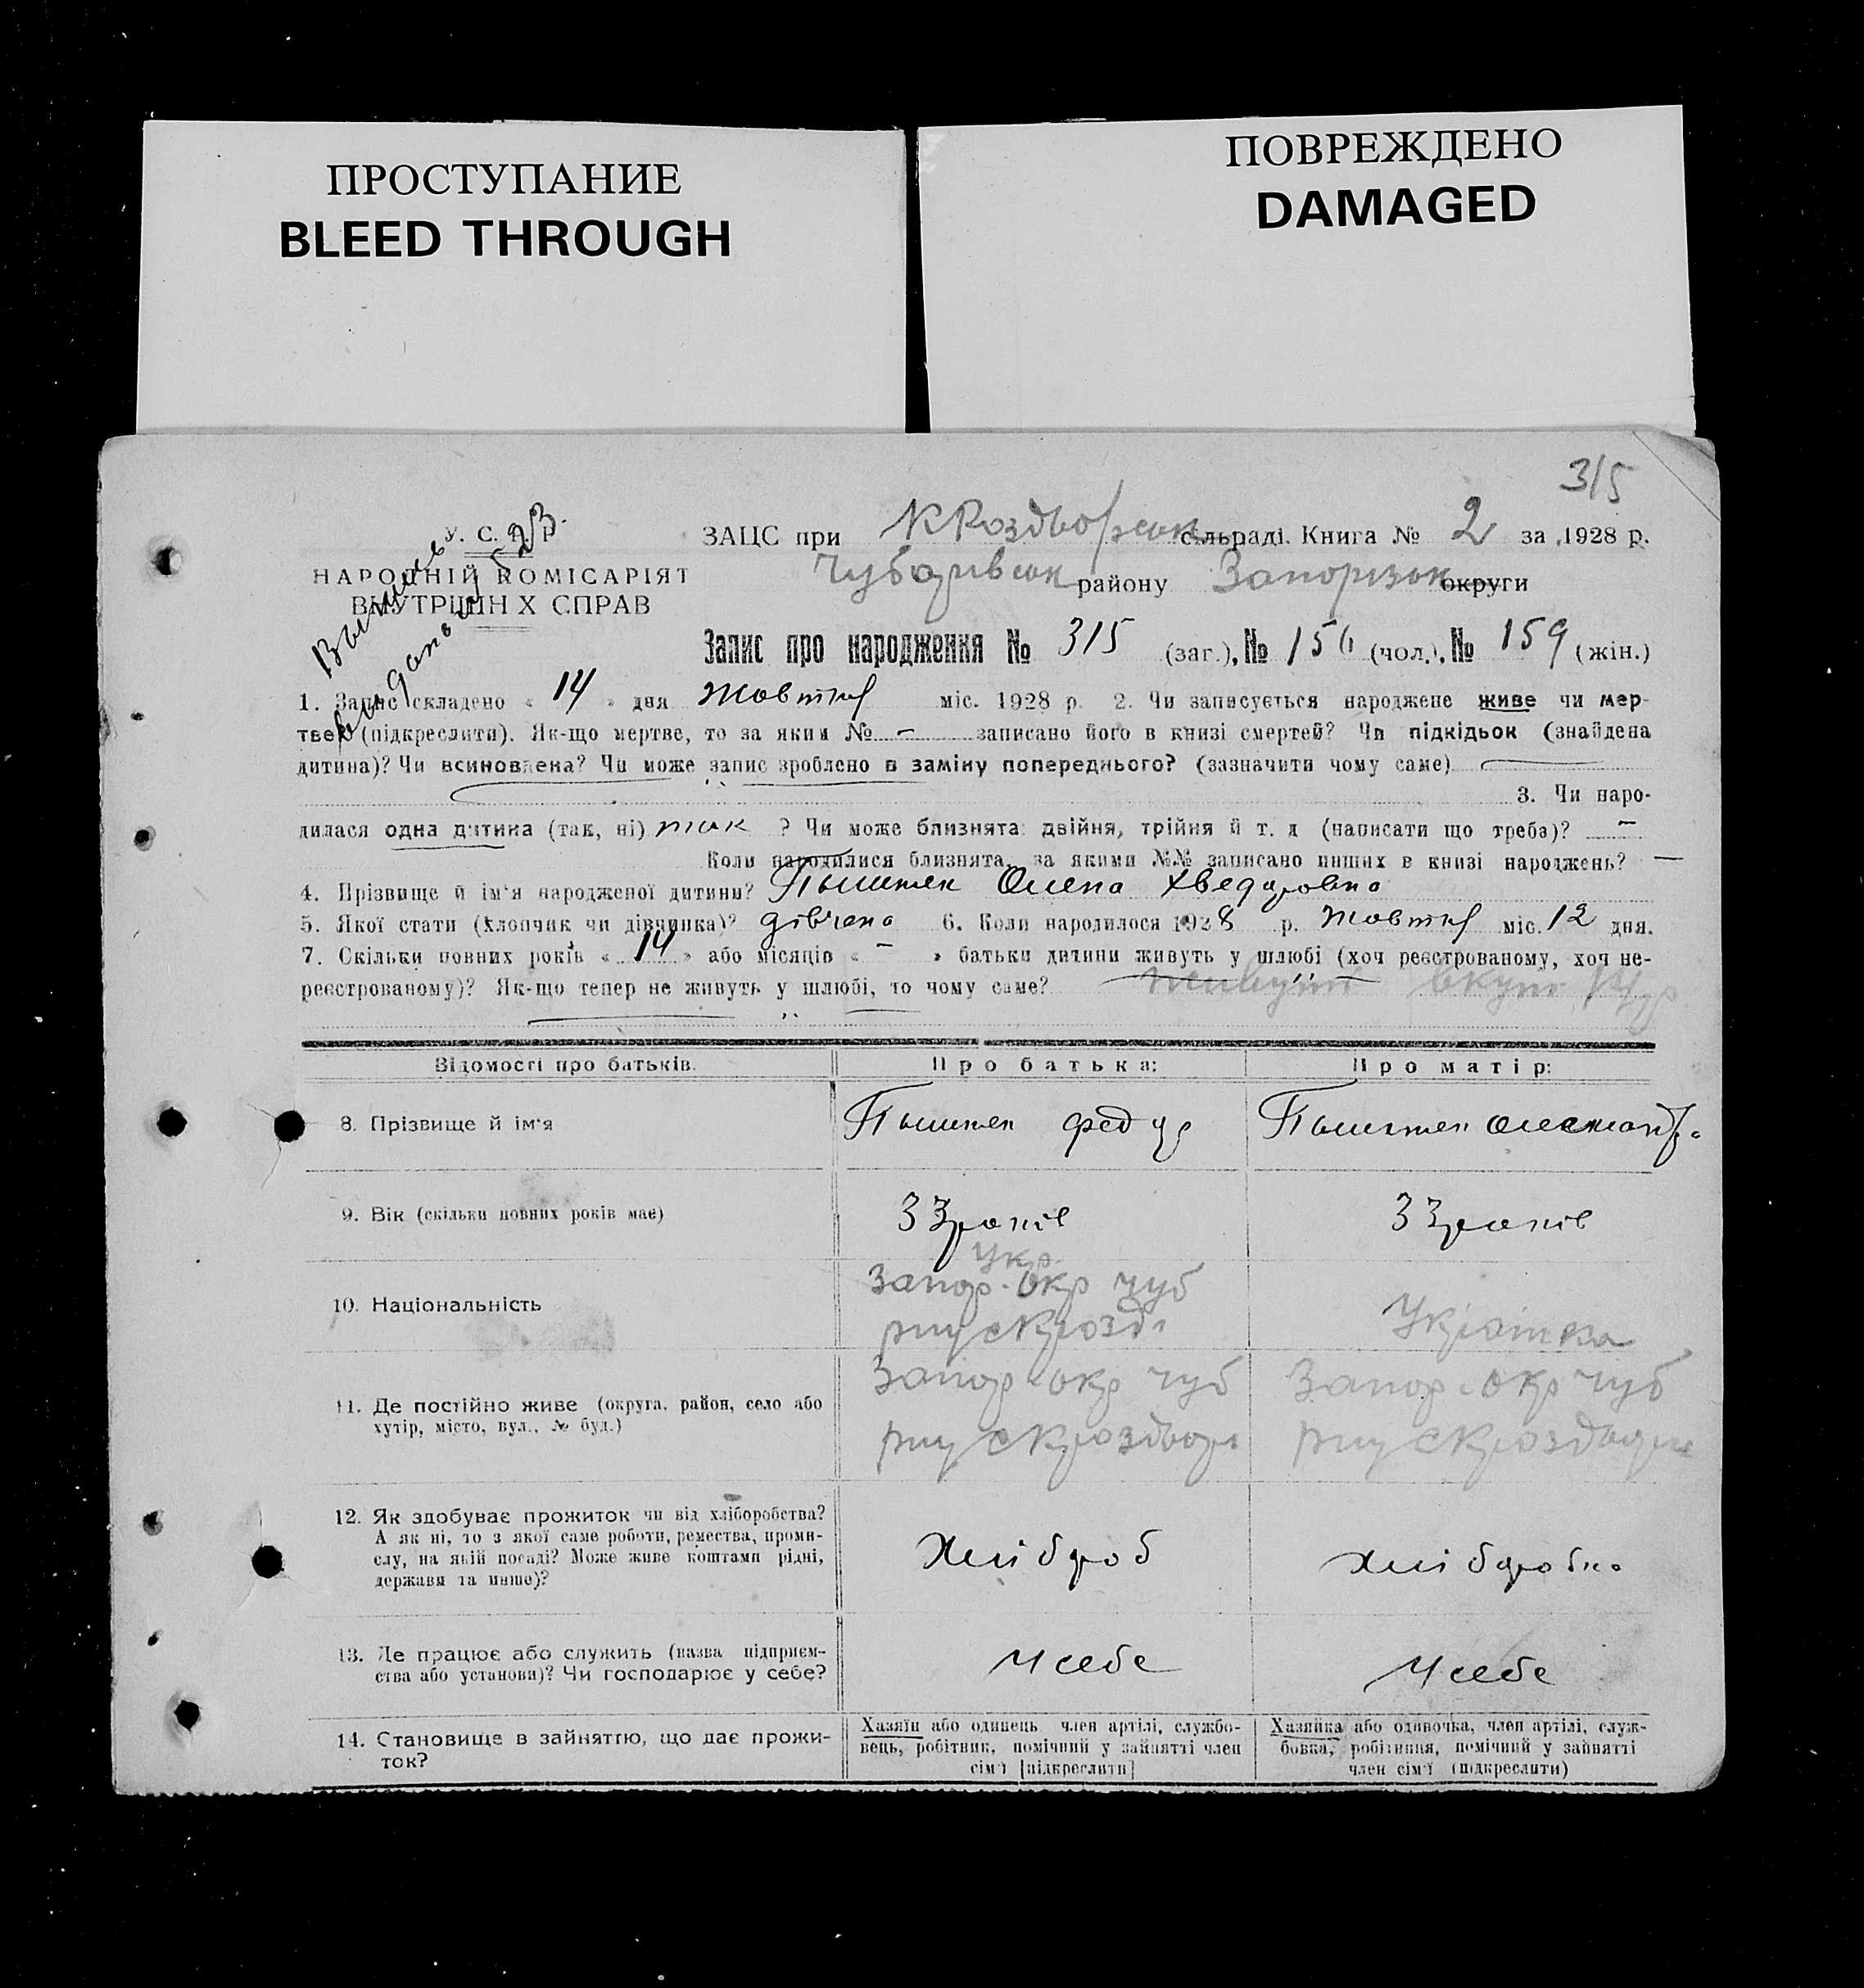 ПРОСТУПАНИЕ
BLEED THROUGH
ПОВРЕЖДЕНО
DAMAGED
315
У. С. Р. Р.
НАРОДНІЙ КОМІСАРІЯТ
ВНУТРІШНІХ СПРАВ
ЗАЦС при сільраді. Книга № 2 за 1928 р.
Чубарівськ району Запорізьк округи
Запис про народження № 315 (заг.), № 156 (чол.), № 159 (жін.)
1. Запис складено « 14 » дня жовтня міс. 1928 р. 2. Чи записується народжене живе чи мер-
тве (підкреслити). Як-що мертве, то за яким № – записано його в книзі смертей? Чи підкідьок (знайдена
дитина)? Чи всиновлена? Чи може запис зроблено в заміну попереднього? (зазначити чому саме)
3. Чи наро-
дилася одна дитина (так, ні) так ? Чи може близнята: двійня, трійня й т. д (написати що треба)? –
Коли народилися близнята, за якими №№ записано инших в книзі народжень? —
4. Прізвище й ім'я народженої дитини? Олена Хведоровна
5. Якої стати (хлопчик чи дівчинка)? дівчена 6. Коли народилося 1928 р. жовтня міс. 12 дня.
7. Скільки повних років « 14 » або місяців « – » батьки дитини живуть у шлюбі (хоч реєстрованому, хоч не-
реєстрованому)? Як-що тепер не живуть у шлюбі, то чому саме? живуть вкупі 14 р
Відомості про батьків.
Про батька:
Про матір:
8. Прізвище й ім'я
Федор
9. Вік (скільки повних років має)
33 років
33 років
10. Національність
Укр.
Запор. окр чуб
Українка
11. Де постійно живе (округа, район, село або
хутір, місто, вул., № буд.)
Запор окр чуб
Запор окр чуб
12. Як здобуває прожиток чи від хліборобства?
А як ні, то з якої саме роботи, ремества, проми-
слу, на якій посаді? Може живе коштами рідні,
держави та инше)?
Хлібороб
хлібороб
13. Де працює або служить (назва підприєм-
ства або установи)? Чи господарює у себе?
У себе
У себе
14. Становище в зайняттю, що дає прожи-
ток?
Хазяїн або одинець, член артілі, службо-
вець, робітник, помічний у зайнятті член
сім'ї [підкреслити]
Хазяйка або одиночка, член артілі, служ-
бовка, робітниця, помічний у зайнятті
член сім'ї (підкреслити)